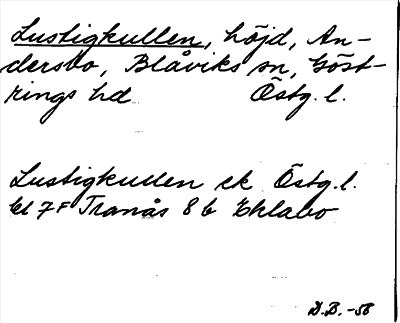 Lustigkullen, höjd, An-
dersbo, Blåviks sn, Göst-
rings hd Östg. l.
Lustigkullen ek Östg. l.
bl 7F Tranås 8 b Ehlabo
D.B.-58